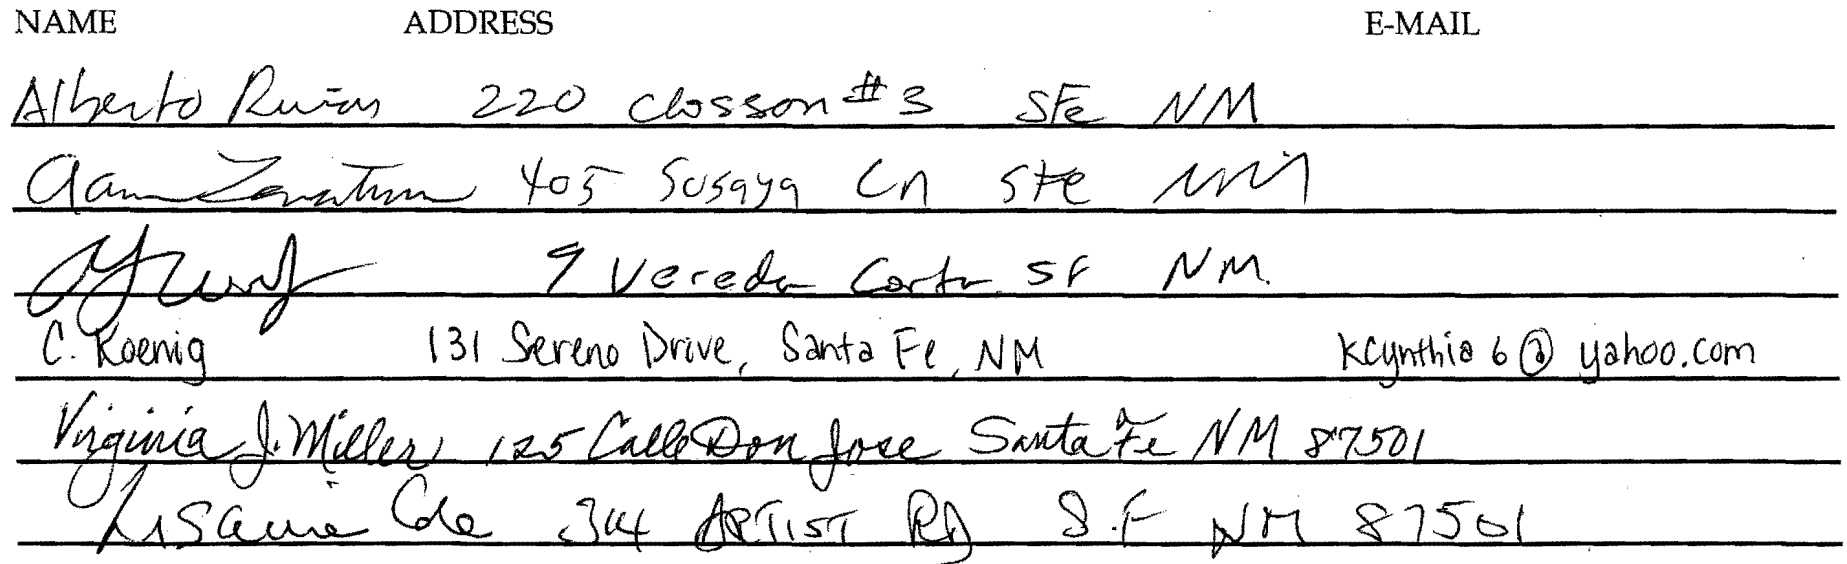 NAME ADDRESS E-MAIL
Alberto 220 Closson #3 SFe NM
405 Sosaya Cn Sfe NM
9 Vereda Corta SF NM.
C. Koenig 131 Sereno Drive, Santa Fe, NM kcynthia6@yahoo.com
Virginia J. Miller 125 Calle Don Jose Santa Fe NM 87501
Cole 314 ARTIST RD S.F NM 87501